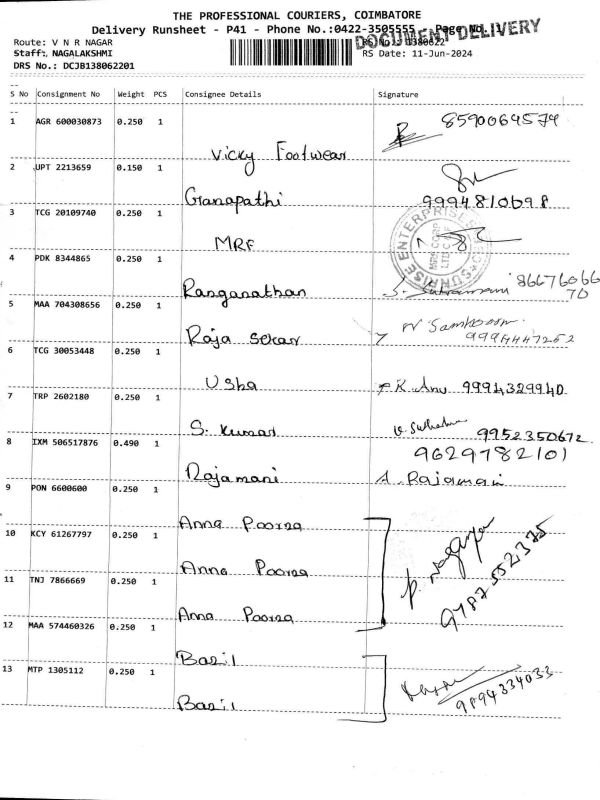 THE PROFESSIONAL COURIERS, COIMBATORE
Delivery Runsheet - P41 - Phone No.:0422-3505555 Page No.
DOCUMENT DELIVERY
Route: V N R NAGAR
RS No.: 1380622
Staff: NAGALAKSHMI
RS Date: 11-Jun-2024
DRS No.: DCJB138062201
S No Consignment No Weight PCS Consignee Details Signature
1 AGR 600030873 0.250 1 8590064574
Vicky Footwear
2 UPT 2213659 0.150 1
Ganapathi 9994810698
3 TCG 20109740 0.250 1
MRF
SUNRISE ENTERPRISES
4 PDK 8344865 0.250 1
Ranganathan 86676066
70
5 MAA 704308656 0.250 1
Raja Sekar 9994447252
6 TCG 30053448 0.250 1
Usha K Anu 9994329940
7 TRP 2602180 0.250 1
S. Kumar 9952350672
8 IXM 506517876 0.490 1 9629782101
Rajamani A. Rajamani
9 PON 6600600 0.250 1
Anna Poorna
10 KCY 61267797 0.250 1
Anna Poorna P. Nagajya
9787552375
11 TNJ 7866669 0.250 1
Anna Poorna
12 MAA 574460326 0.250 1
Bazil
13 MTP 1305112 0.250 1 9894334033
Bazil